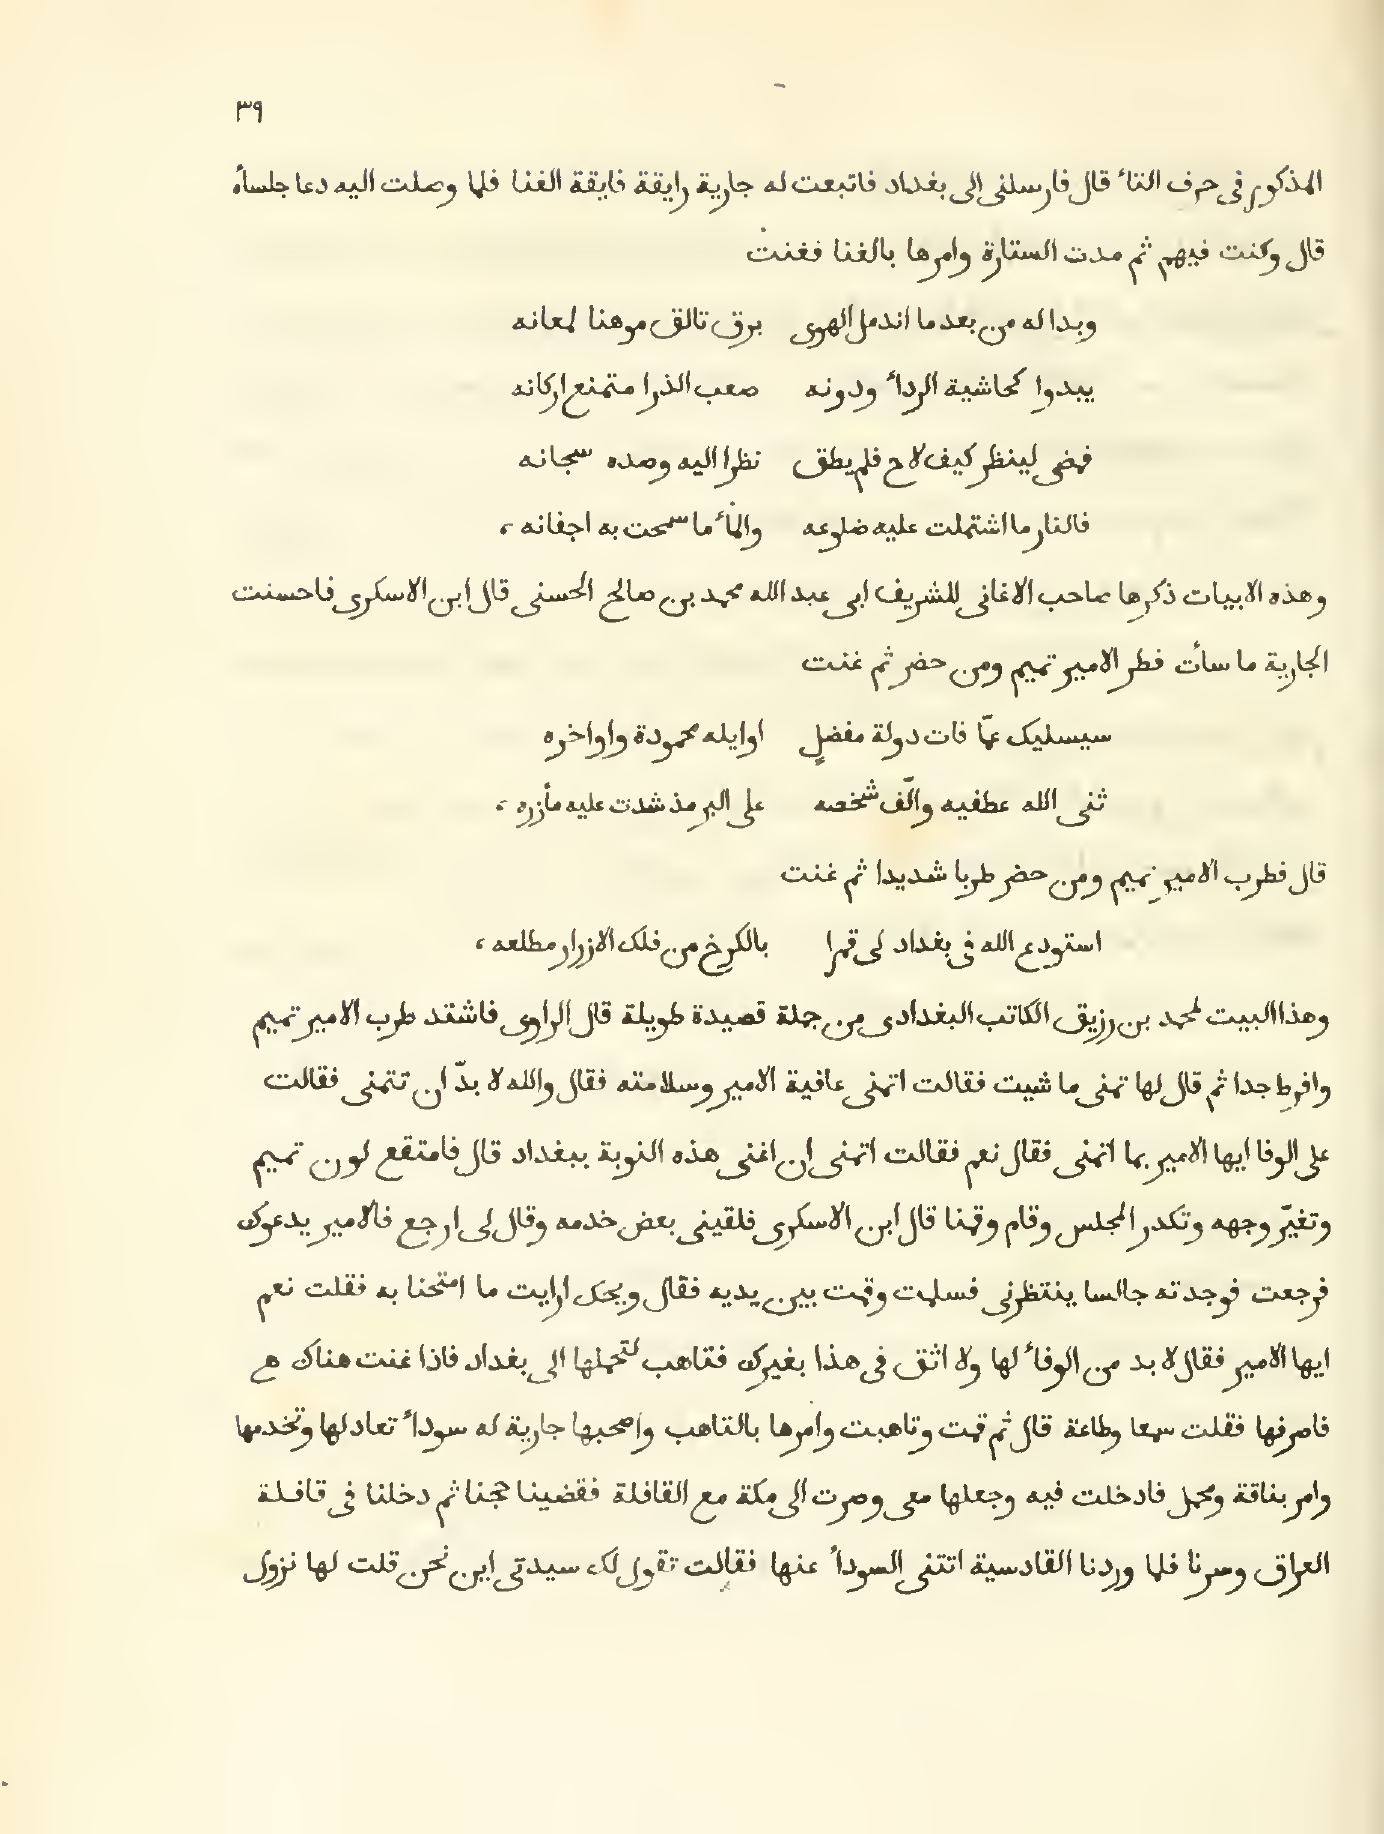 ٣٩
المذكور فى حرف التاء قال فارسلنى الى بغداد فاتبعت له جارية رايقة فايقة الغنا فلما وصلت اليه دعا جلساه
قال وكنت فيهم ثم مدت الستارة وامرها بالغنا فغنت
وبدا له من بعد ما اندمل الهوى برق تالق موهنا لمعانه
يبدوا كحاشية الرداء ودونه صعب الذرا متمنع اركانه
فمضى لينظر كيف لاح فلم يطق نظرا اليه وصده سجانه
فالنار ما اشتملت عليه ضلوعه والماء ما سمحت به اجفانه ،
وهذه الابيات ذكرها صاحب الاغانى للشريف ابى عبد الله محمد بن صالح الحسنى قال ابن الاسكرى فاحسنت
الجارية ما سأت فطر الامير تميم ومن حضر ثم غنت
سيسليك عمّا فات دولة مفضلٍ اوايله محمودة واواخره
ثنى الله عطفيه والّف شخصه على البر مذ شدت عليه مأزره ،
قال فطرب الامير تميم ومن حضر طربا شديدا ثم غنت
استودع الله فى بغداد لى قمرا بالكرخ من فلك الازرار مطلعه ،
وهذا البيت لمحمد بن رزيق الكاتب البغدادى من جملة قصيدة طويلة قال الراوى فاشتد طرب الامير تميم
وافرط جدا ثم قال لها تمنى ما شيت فقالت اتمنى عافية الامير وسلامته فقال والله لا بدّ ان تتمنى فقالت
على الوفا ايها الامير بما اتمنى فقال نعم فقالت اتمنى ان اغنى هذه النوبة ببغداد قال فامتقع لون تميم
وتغيّر وجهه وتكدر المجلس وقام وقمنا قال ابن الاسكرى فلقينى بعض خدمه وقال لى ارجع فالامير يدعوك
فرجعت فوجدته جالسا ينتظرنى فسلمت وقمت بين يديه فقال ويحك ارايت ما امتحنا به فقلت نعم
ايها الامير فقال لا بد من الوفاء لها ولا اثق فى هذا بغيرك فتاهب لتحملها الى بغداد فاذا غنت هناك هى
فاصرفها فقلت سمعا وطاعة قال ثم قمت وتاهبت وامرها بالتاهب واصحبها جارية له سوداء تعادلها وتخدمها
وامر بناقة ومحمل فادخلت فيه وجعلها معى وصرت الى مكة مع القافلة فقضينا حجنا ثم دخلنا فى قافلة
العراق وسرنا فلما وردنا القادسية اتتنى السودأ عنها فقالت تقول لك سيدتى اين نحن قلت لها نزول